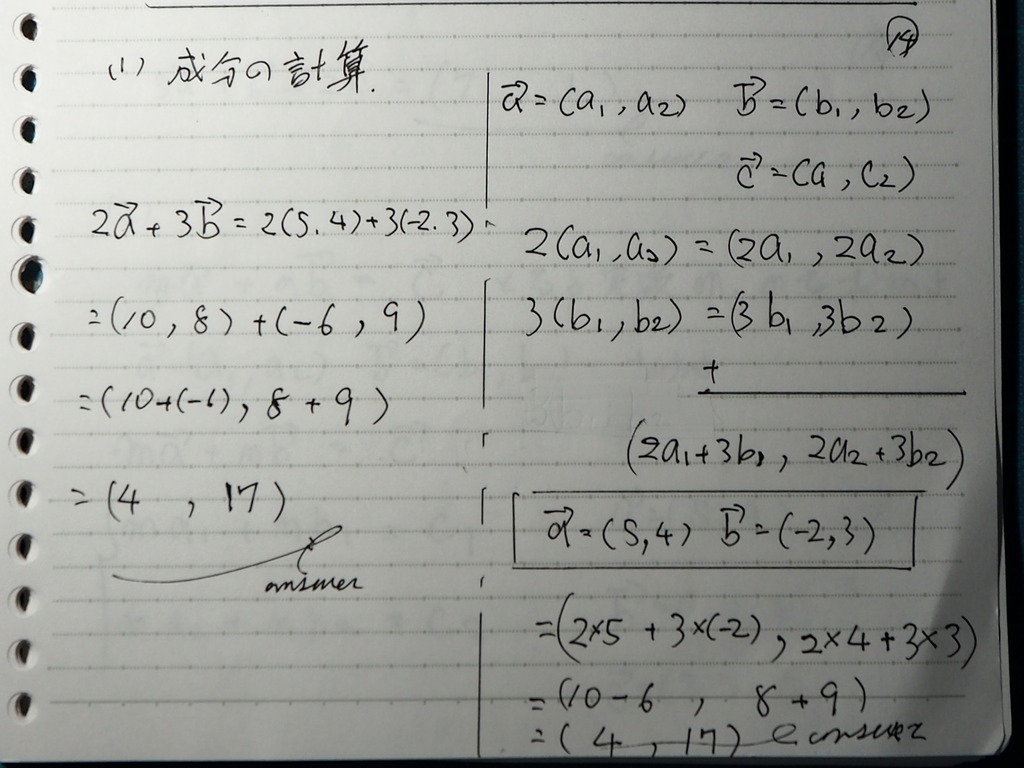 ⑭
(1) 成分の計算.
2a⃗ + 3b⃗ = 2(5.4)+3(-2.3)
=(10, 8) + (-6, 9)
=(10+(-6), 8 + 9)
= (4, 17)
answer
a⃗ = (a₁, a₂) b⃗ = (b₁, b₂)
c⃗ = (c₁, c₂)
2(a₁, a₂) = (2a₁, 2a₂)
3(b₁, b₂) = (3b₁, 3b₂)
+
(2a₁+3b₁, 2a₂+3b₂)
a⃗ = (5,4) b⃗ = (-2,3)
=(2×5 + 3×(-2), 2×4+3×3)
= (10-6, 8+9)
= (4, 17) answer